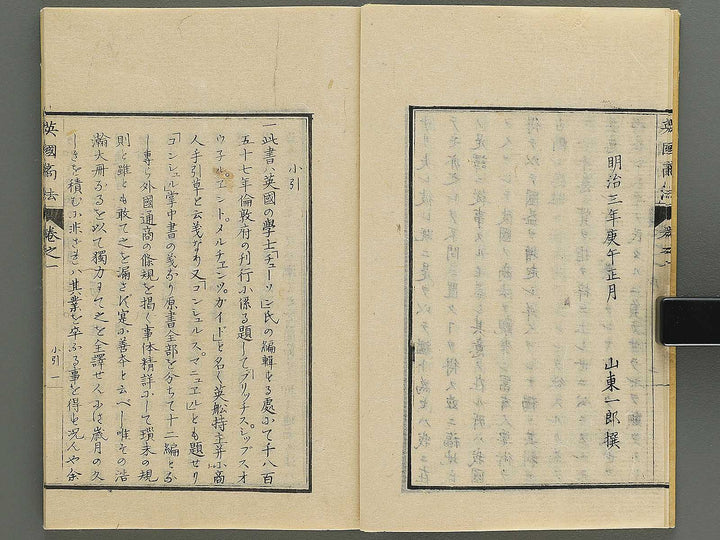 明治三年庚午正月
山東一郎撰
小引
一此書ハ英國の學士「チューソン」氏の編輯する處にて千八百
五十七年倫敦府の刊行に係る題して「ブリッチス、シップスオ
ウ子ル、エント、メルチェンツ、ガイド」と名く英舩持主并に商
人手引草と云義なり又「コンシュルス、マニュエル」とも題せり
「コンシュル」掌中書の義なり原書全部を分ちて十二編とな
し専ら外國通商の條規を掲く事体精詳にして瑣末の規
則と雖とも敢て之を漏さす寔に善本と云べし唯その浩
瀚大冊なるを以て獨力にて之を全譯せんには歳月の久
しきを積むに非ざれハ其業を卒ふる事を得す况んや余
英國商法
卷之一
小引 一